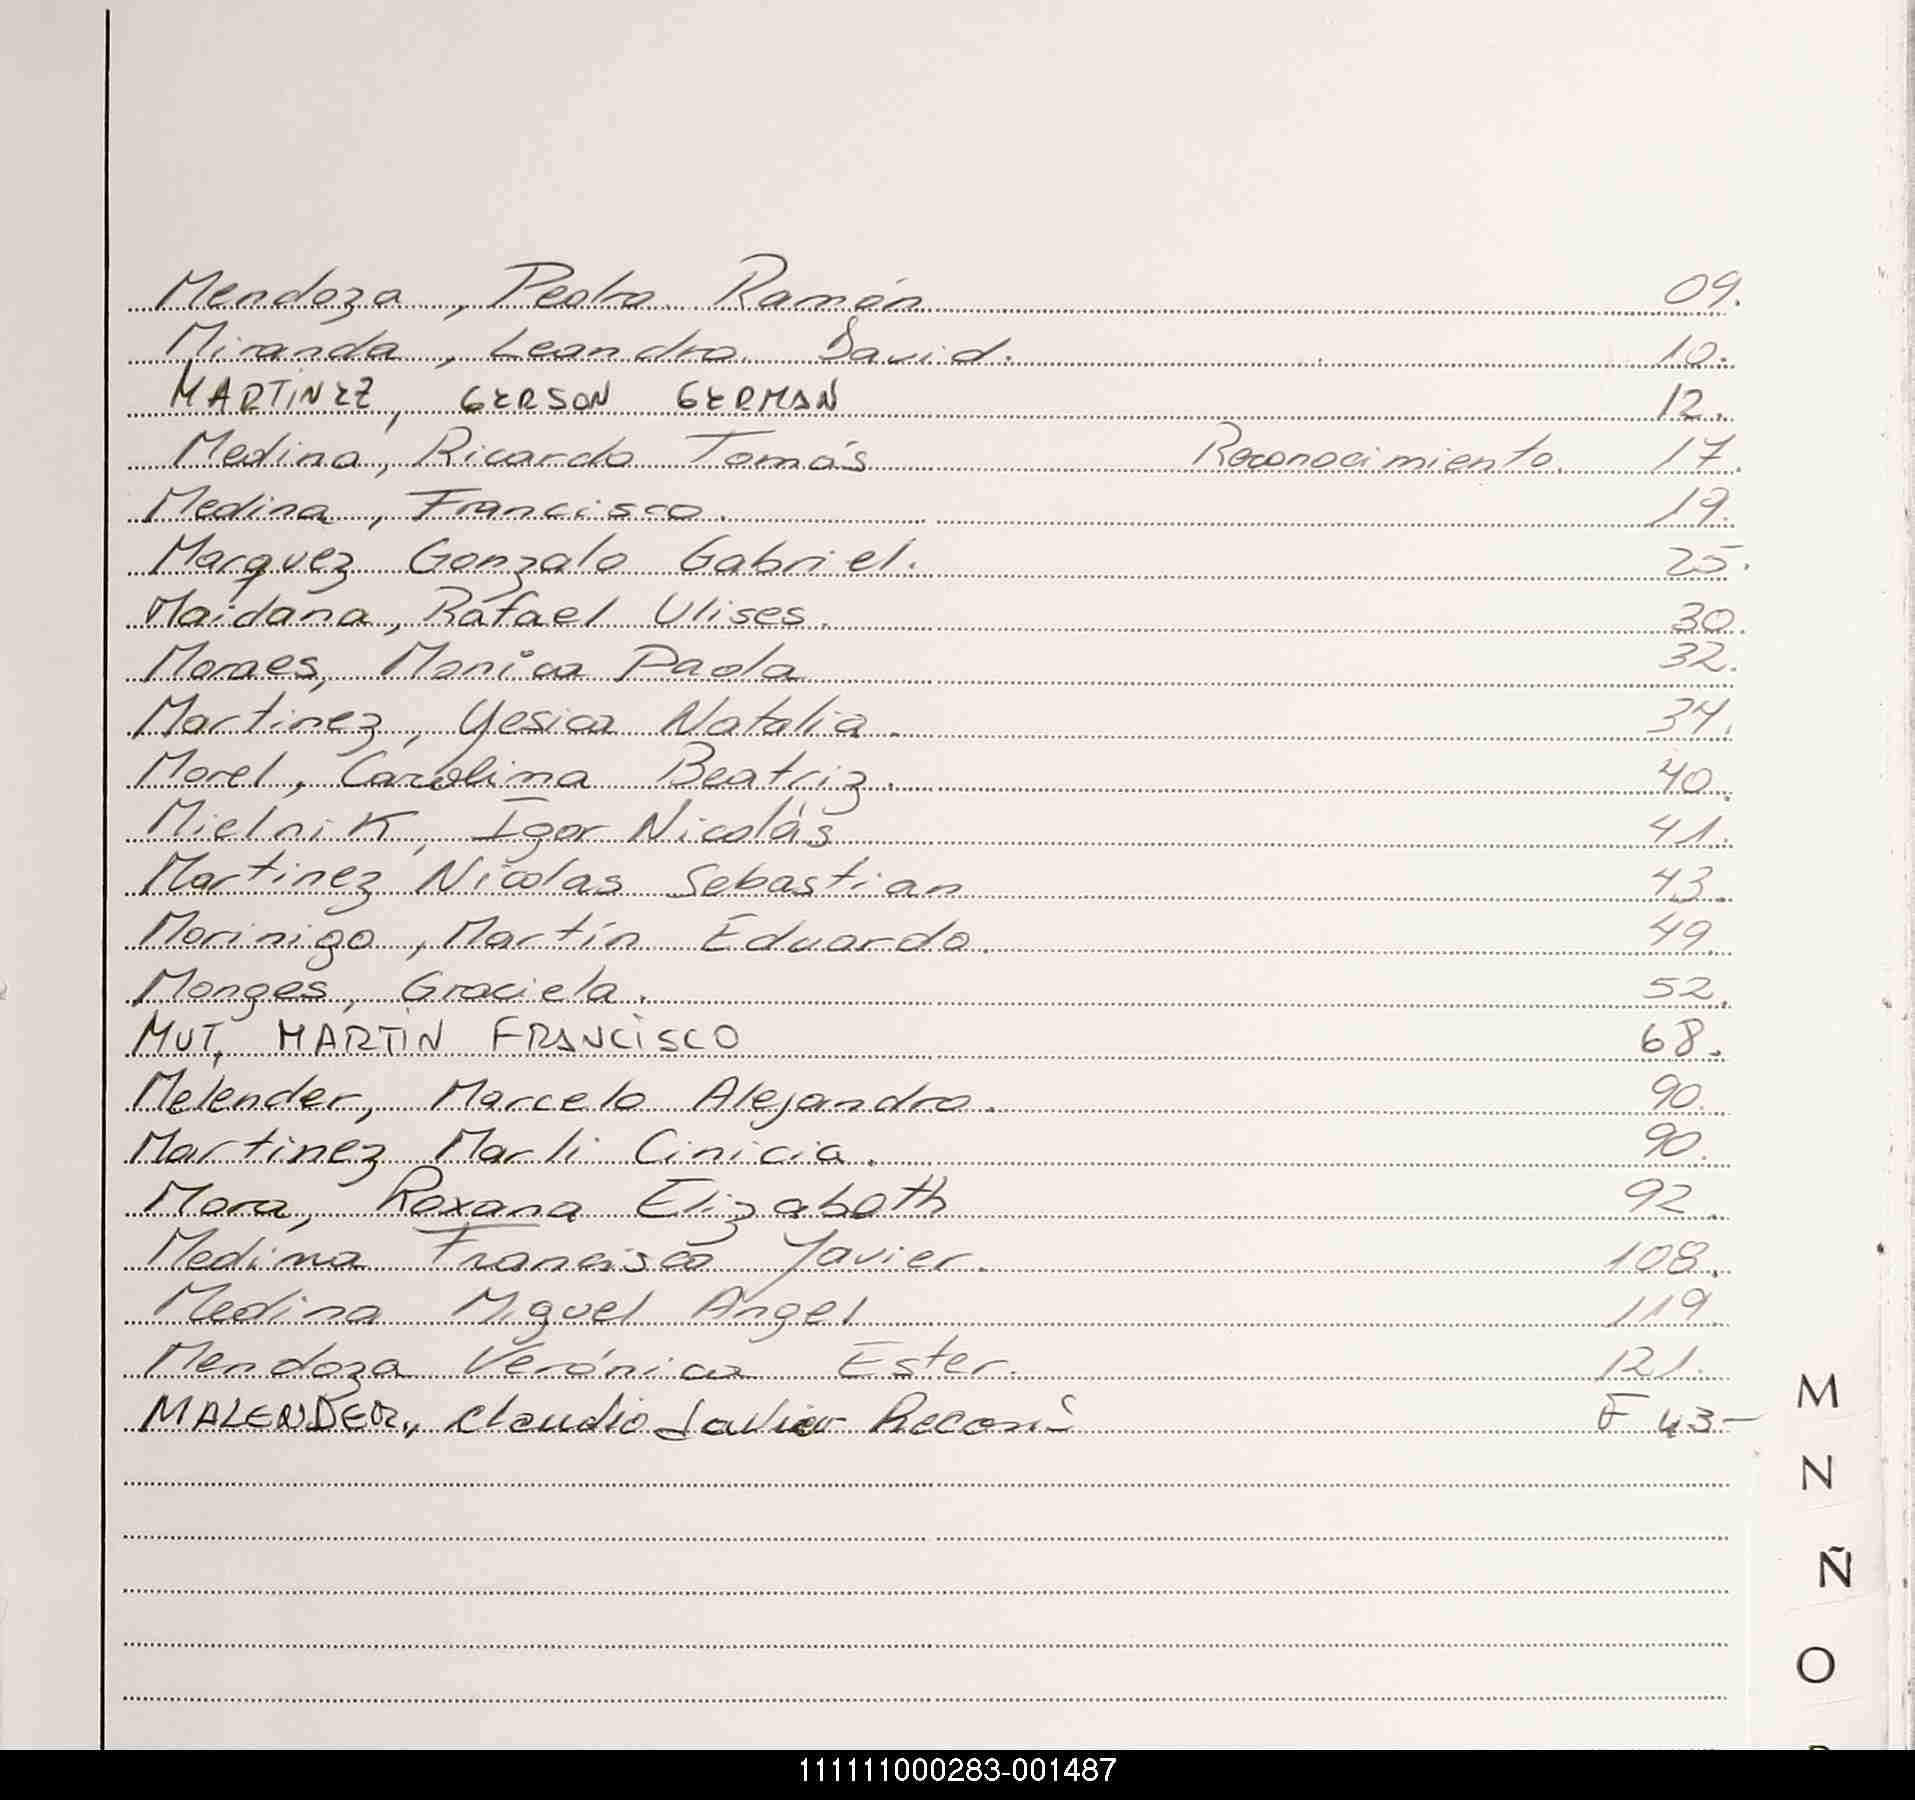 Mendoza, Pedro Ramón 09.
Miranda, Leandro David. 10.
MARTINEZ, GERSON GERMAN 12.
Medina, Ricardo Tomás Reconocimiento. 17.
Medina, Francisco. 19.
Marquez Gonzalo Gabriel. 25.
Maidana, Rafael Ulises. 30.
Moraes, Monica Paola 32.
Martinez, Yesica Natalia. 34.
Morel, Carolina Beatriz. 40.
Mielnik, Igor Nicolás 41.
Martinez Nicolas Sebastian 43.
Morinigo, Martín Eduardo. 49.
Monges, Graciela. 52.
MUT, MARTIN FRANCISCO 68.
Melender, Marcelo Alejandro. 90.
Martinez Marli Cinicia. 90.
Mora, Roxana Elizabeth 92.
Medina Francisco Javier. 108.
Medina Miguel Angel 119.
Mendoza Verónica Ester. 121.
MALENDER, Claudio Javier F 43-
M
N
Ñ
O
111111000283-001487